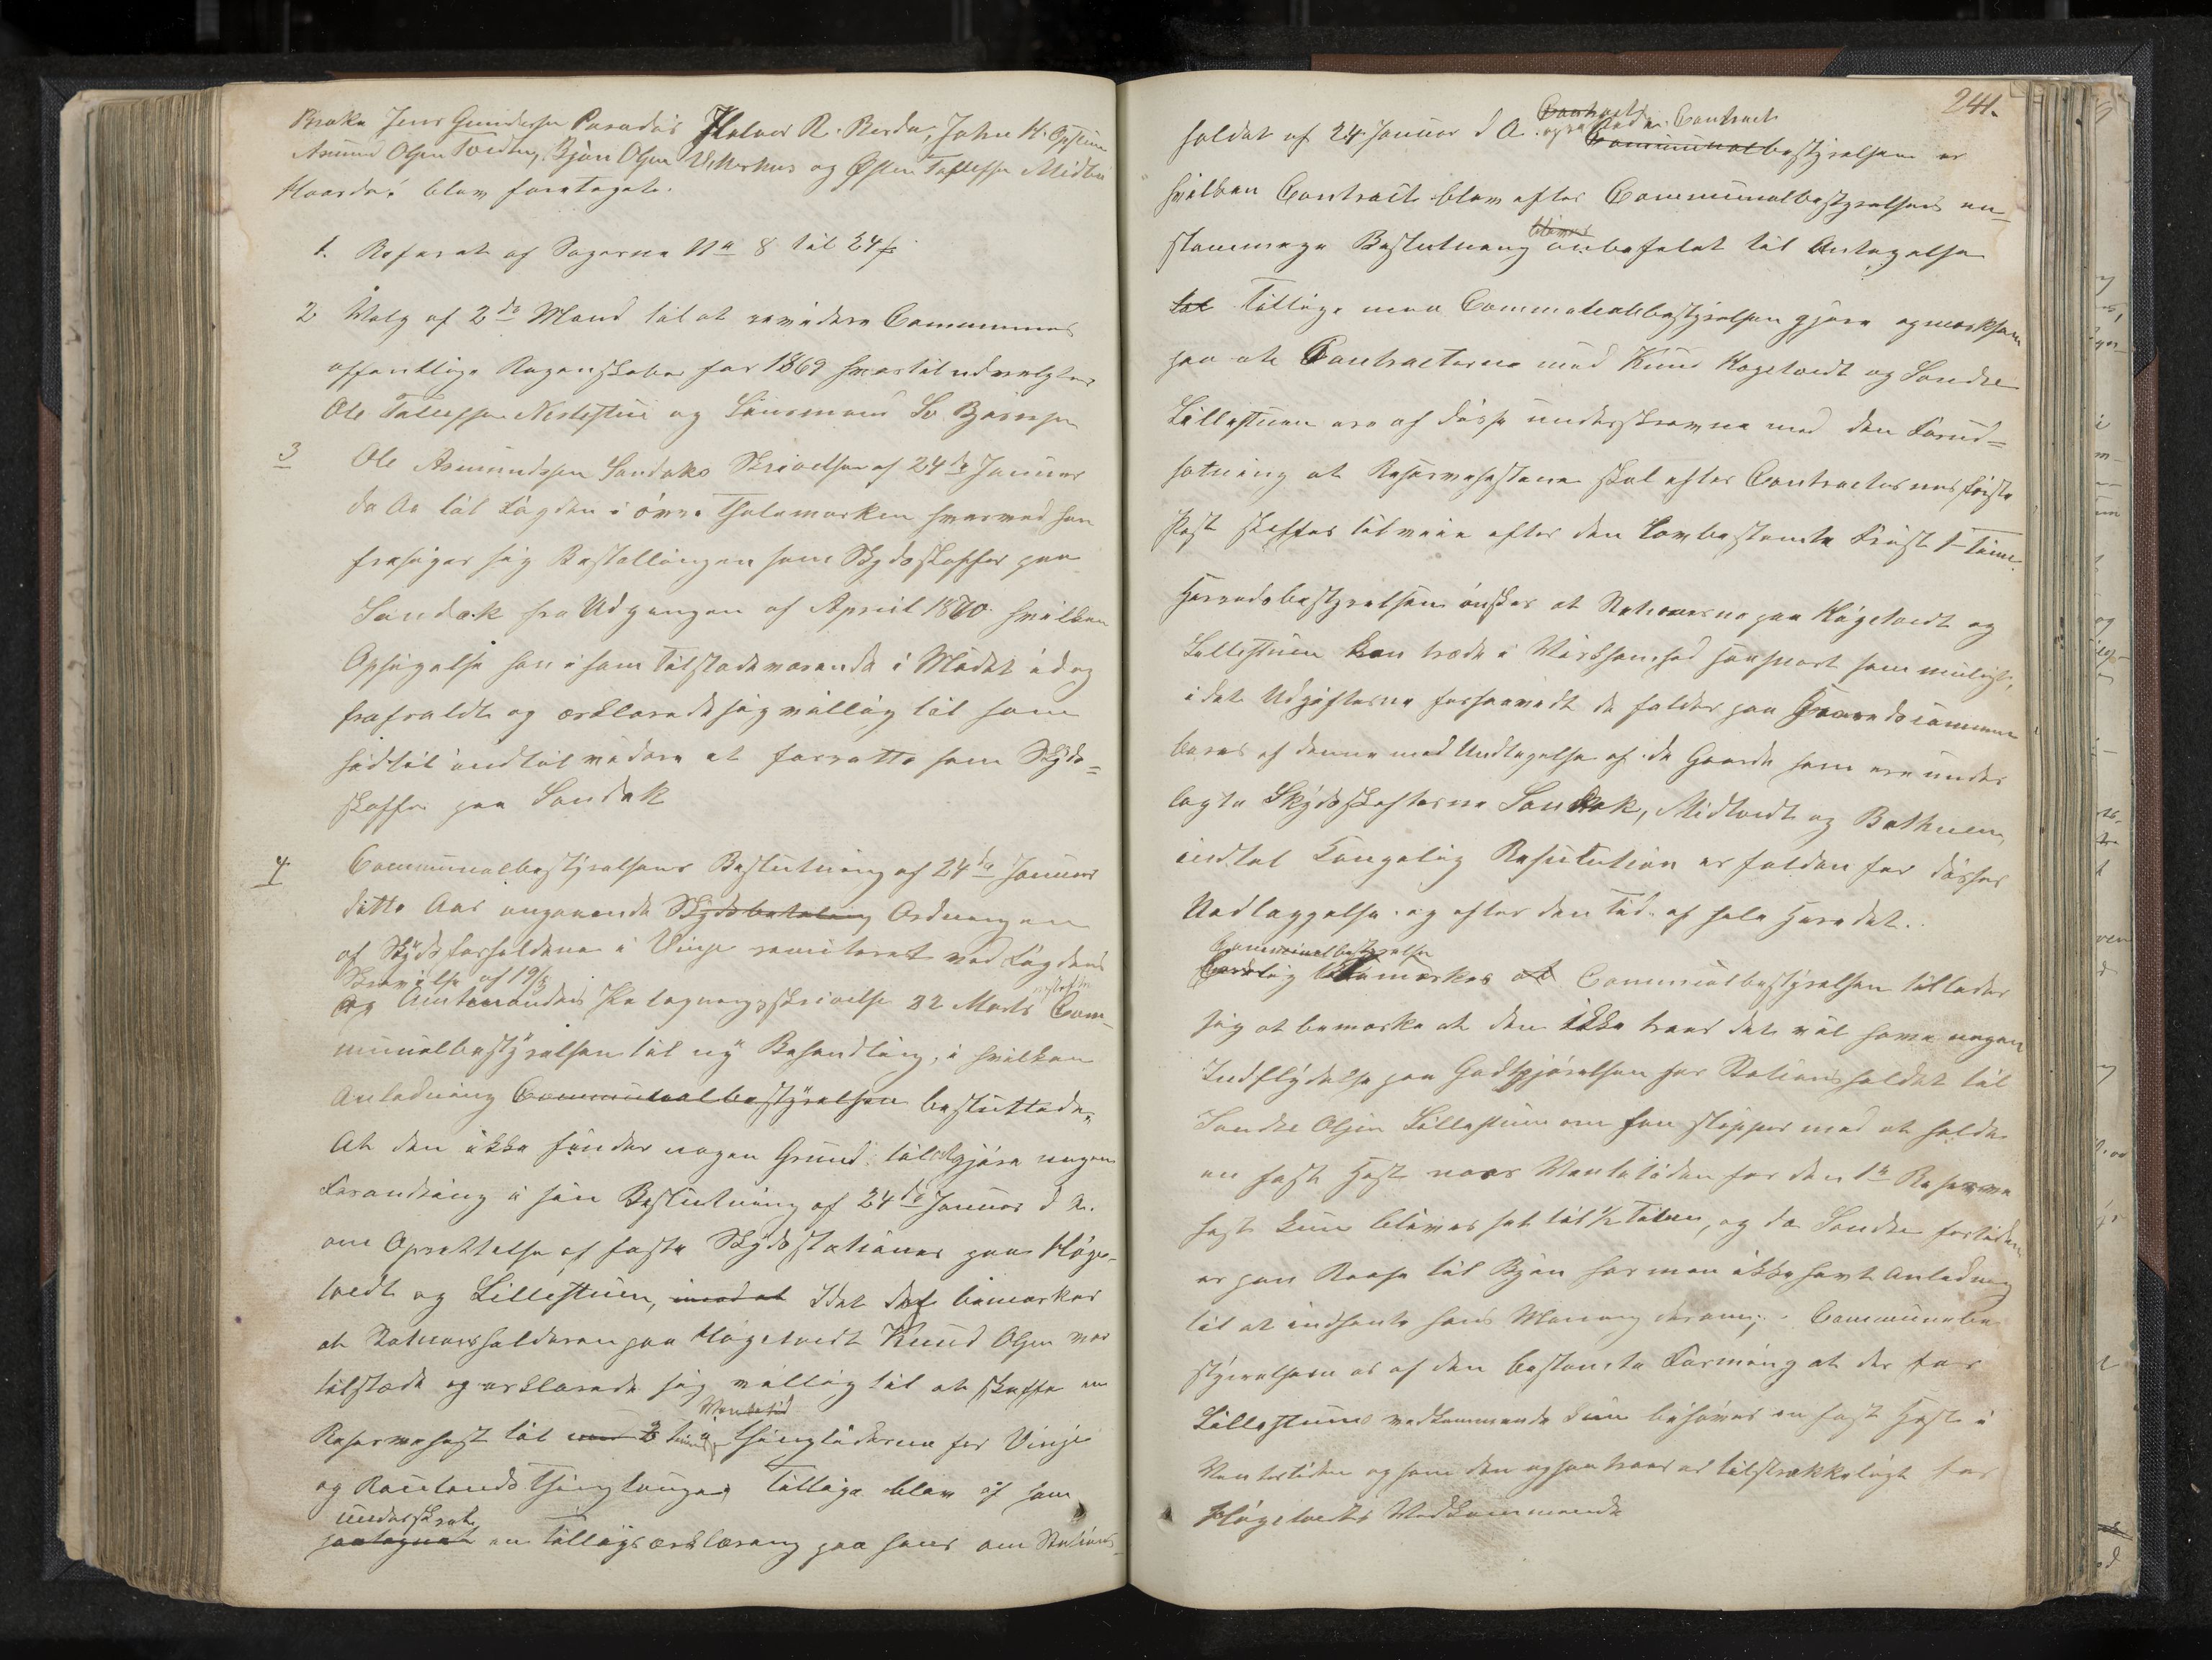 Brække Jens Gundersen Paradis Halvor R. Berdu, John H. Opstun
Asmund Olsen Tvedten, Bjørn Olsen Urhus og Østen Tostefsen Midtbø
Haarder: blev foretaget.
1. Referat af Sagerne Nº 8 til 24
2 Valg af 2de Mænd til at revidere Communens
offentlige Regenskaber for 1869 hvortil udvalgtes
Ole Tallefsen Nestestue og Lensmand So Bjørnsen
3 Ole Asmundssen Sandoks Skrivelse af 24de Januar
da Aa til Fogden i øvre Thelemarken hvorved han
frasiger sig Bestillingen som Skydsskaffer paa
Sandok fra Udgangen af April 1870 hvilken
Opsigelse han i som tilstedeværende i Mødet idag
frafaldt og erklærede sig villig til som
hidtil indtil videre at forrette som Skyds=
skaffer paa Sandok
4. Communalbestyrelsens Beslutning af 24de Januar
dette Aar angaaende Skydsbetaling Ordningen
af Skydsforholdene i Vinje remiteret ved Fogdens
Skrivelse af 19/3
og Amtmandens Paategningsskrivelse 22 Marts Com-
munalbestyrelsen til ny Behandling, i hvilken
Anledning Communalbestyrelsen besluttede,
At den ikke finder nogen Grund til at gjøre nogen
Forandring i sin Beslutning af 24de Januar d A.
om Oprettelse af faste Skydsstationer paa Høge-
tvedt og Lillestuen, med at Idet det bemærkes
at Stationsholderen paa Høgetvedt Knud Olsen var
tilstede og erklærede sig villig til at skaffe en
Ventetid
Reservehest til med 3 Timers Thingtiderne for Vinje
og Raulands Thinglauge. Tillige blev af ham
underskrevet
paategnet en Tillægserklæring paa hans om Stations-
241.
Contract
holdet af 24 Januar d A. oprettede Contract
Communalbestyrelsen er
hvilken Contract blev efter Communalbestyrelsens en-
bliver
stemmige Beslutning anbefalet til Antagelse
tel Tillige maa Communalbestyrelsen gjøre opmærksom
paa at Contracterne med Knud Høgetvedt og Sondre
Lillestuen ere af disse underskrevne med den Forud=
sætning at Reservehestene skal efter Contracternes første
Post skaffes tilveie efter den lovbestemte Frist 1 Time.
Herredsbestyrelsen ønsker at Stationerne paa Høgetvedt og
Lillestuen kan træde i Virksomhed saasnart som muligt,
idet Udgifterne forsaavidt de falder paa Herredscommunen
bæres af denne med Undtagelse af de Gaarde som ere under
lagte Skydsskafferne Sandok, Midtvedt og Bothnen,
indtil Kongelig Resolution er falden for disses
Nedlæggelse og efter den Tid af hele Herredet.
Communalbestyrelsen
Endelig bemærkes at Communalbestyrelsen tillader
sig at bemærke at den ikke troer det vil have nogen
Indflydelse paa Godtgjørelsen for Stationsholdet til
Sondre Olsen Lillestuen om han slipper med at holde
en fast Hest naar Ventetiden for den 1e Reserve
hest kun bliver sat til ½ Time, og da Sondre fortiden
er paa Reise til Byen har man ikke havt Anledning
til at indhente hans Mening derom; Communebe
styrelsen er af den bestemte Formening at der for
Lillestuens vedkommende kun behøves en fast Hest i
Ventetiden og som den ogsaa troer er tilstrækkeligt for
Høgetvedts Vedkommende